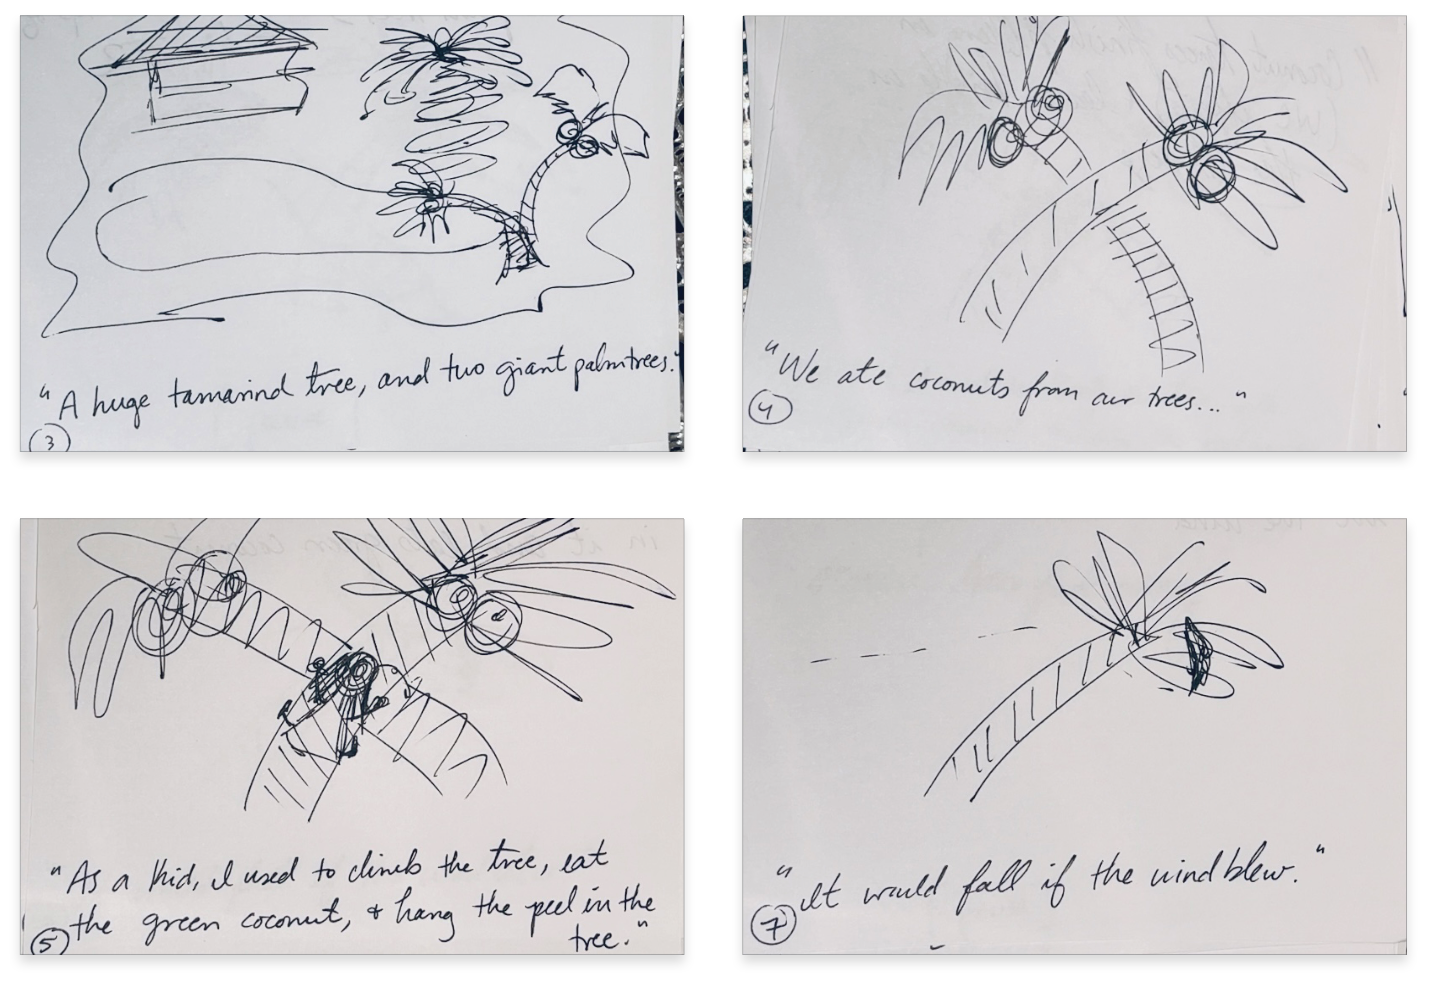 "A huge tamarind tree, and two giant palmtrees."
3
"We ate coconuts from our trees..."
4
"As a kid, I used to climb the tree, eat
the green coconut, & hang the peel in the
tree."
5
"It would fall if the wind blew."
7